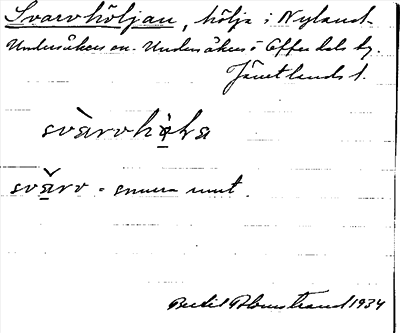 Svarvhöljan, hölja i Nyland-
Undersåkers sn. Undersåkers o Offerdals tg.
Jämtlands l.
svàrvhö̀lɩa
svǎrv = snurra runt.
Bertil Blomstrand 1934